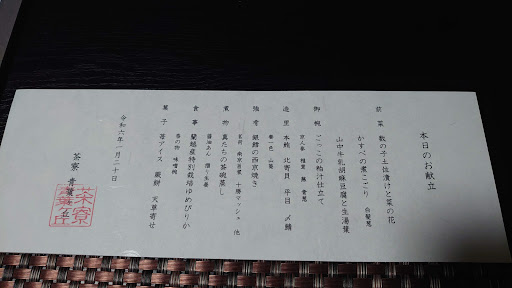 本日のお献立
前菜 数の子土佐漬けと菜の花
かすべの煮こごり 白髪葱
山中牛乳胡麻豆腐と生湯葉
御椀 ごっこの粕汁仕立て
京人参 椎茸 蕪 青葱
造里 本鮪 北寄貝 平目 〆鯖
妻一色 山葵
強肴 銀鱈の西京焼き
煮物 真たちの茶碗蒸し
醤油あん 卸し生姜
食事 蘭越産特別栽培ゆめぴりか
香の物 味噌椀
菓子 苺アイス 蕨餅 天草寄せ
令和六年一月二十日
茶寮